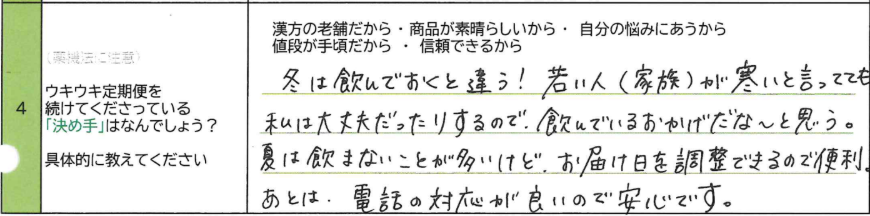 漢方の老舗だから・商品が素晴らしいから・ 自分の悩みにあうから
値段が手頃だから ・ 信頼できるから
(薬機法に注意)
4
ウキウキ定期便を
続けてくださっている
「決め手」はなんでしょう?
具体的に教えてください
冬は飲んでおくと違う! 若い人(家族)が寒いと言ってても
私は大丈夫だったりするので、飲んでいるおかげだな〜と思う。
夏は飲まないことが多いけど、お届け日を調整できるので便利。
あとは、電話の対応が良いので安心です。